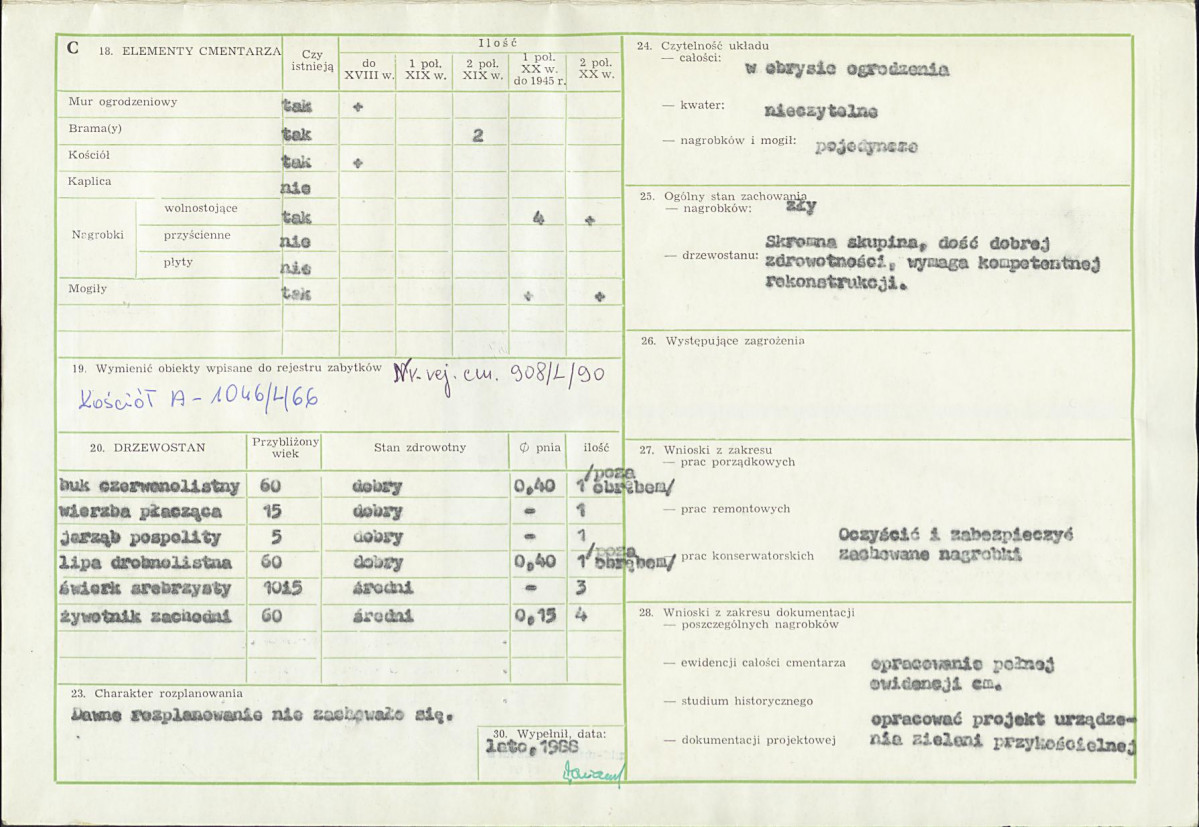 C 18. ELEMENTY CMENTARZA
Czy istnieją
Ilość
do XVIII w.
1 poł. XIX w.
2 poł. XIX w.
1 poł. XX w. do 1945 r.
2 poł. XX w.
Mur ogrodzeniowy tak +
Brama(y) tak 2
Kościół tak +
Kaplica nie
Nagrobki
wolnostojące tak 4 +
przyścienne nie
płyty nie
Mogiły tak + +
19. Wymienić obiekty wpisane do rejestru zabytków Nr. rej. cm. 908/L/90
Kościół A - 1046/L/66
20. DRZEWOSTAN Przybliżony wiek Stan zdrowotny Ø pnia ilość
buk czerwonolistny 60 dobry 0,40 1 /poza obrębem/
wierzba płacząca 15 dobry - 1
jarząb pospolity 5 dobry - 1
lipa drobnolistna 60 dobry 0,40 1 /poza obrębem/
świerk srebrzysty 1015 średni - 3
żywotnik zachodni 60 średni 0,15 4
23. Charakter rozplanowania
Dawne rozplanowanie nie zachowało się.
30. Wypełnił, data:
lato, 1988
24. Czytelność układu
— całości: w obrysie ogrodzenia
— kwater: nieczytelne
— nagrobków i mogił: pojedyncze
25. Ogólny stan zachowania
— nagrobków: zły
— drzewostanu: Skromna skupina, dość dobrej
zdrowotności, wymaga kompetentnej
rekonstrukcji.
26. Występujące zagrożenia
27. Wnioski z zakresu
— prac porządkowych
— prac remontowych
— prac konserwatorskich Oczyścić i zabezpieczyć
zachowane nagrobki
28. Wnioski z zakresu dokumentacji
— poszczególnych nagrobków
— ewidencji całości cmentarza opracowanie pełnej
ewidencji cm.
— studium historycznego
— dokumentacji projektowej opracować projekt urządze-
nia zieleni przykościelnej